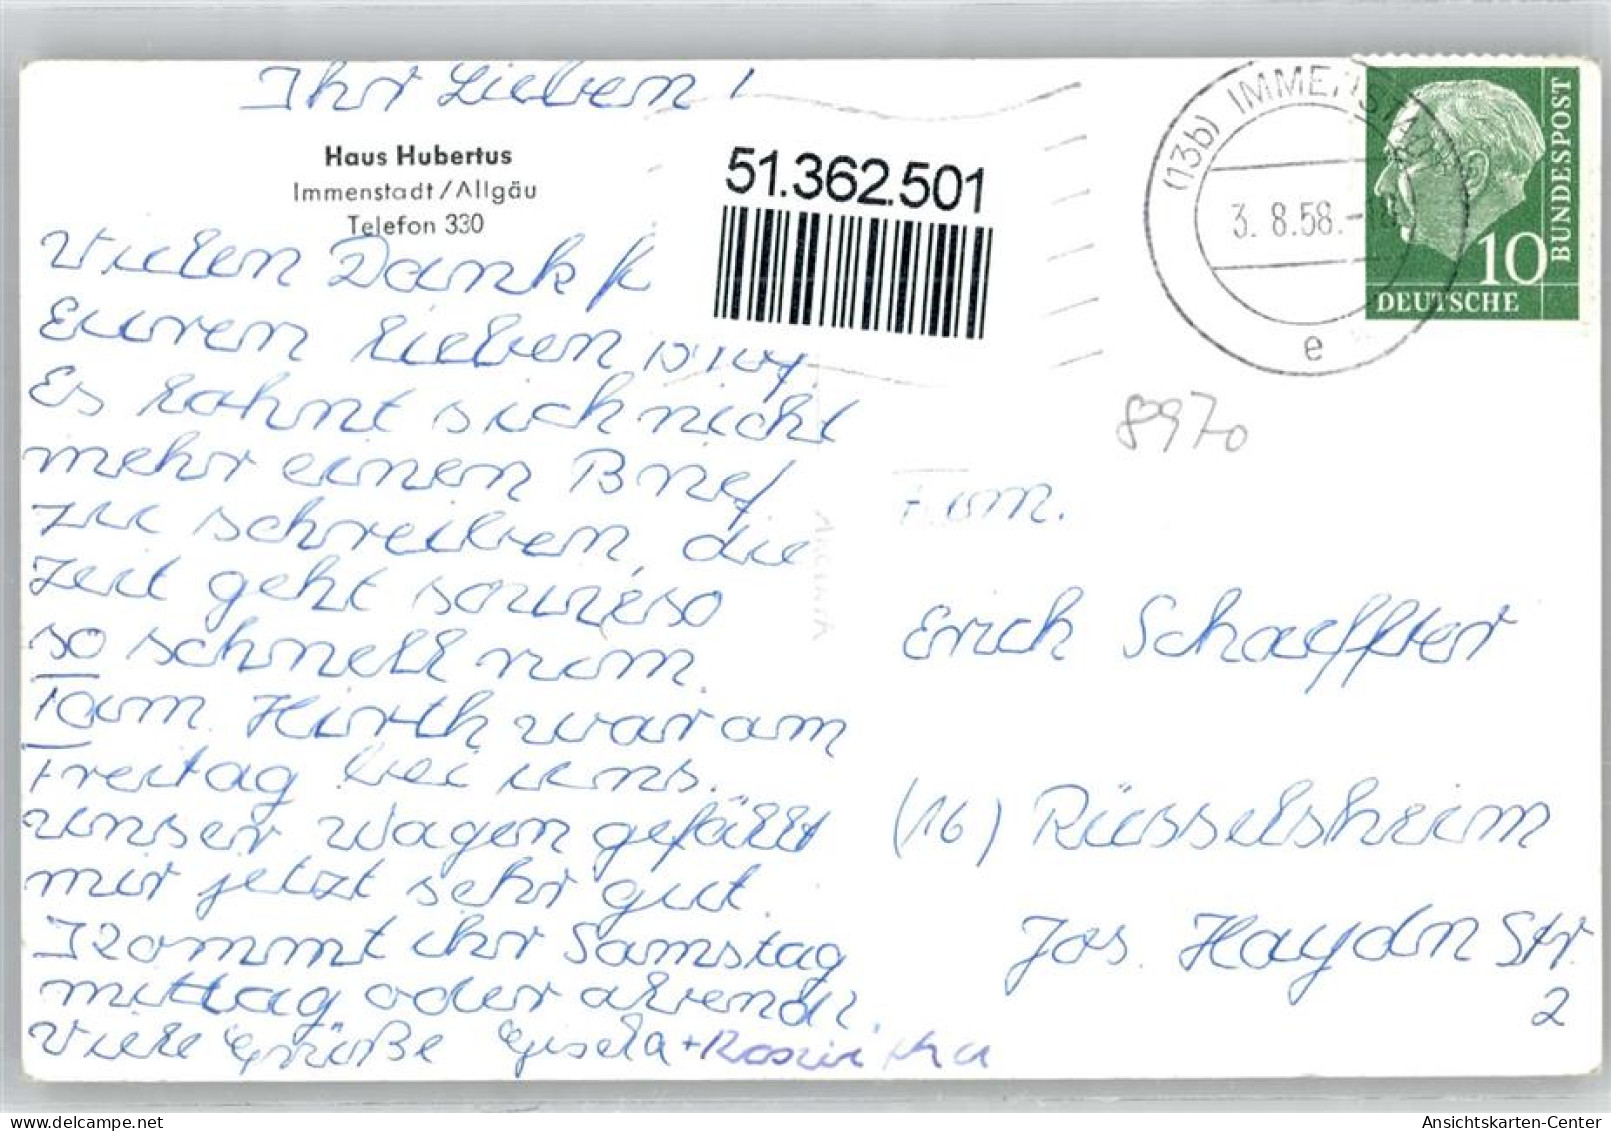 Ihr Lieben!
Haus Hubertus
Immenstadt/Allgäu
Telefon 330
Vielen Dank f
Euren lieben Brief
Es lohnt sich nicht
mehr einen Brief
zu schreiben, die
Zeit geht sowieso
so schnell rum.
Fam. Hirth war am
Freitag bei uns.
unser Wagen gefällt
mir jetzt sehr gut.
Kommt ihr Samstag
mittag oder abend?
Viele Grüße Gisela +
51.362.501
(13b) IMMENSTADT
3. 8.58.-18
e
10
DEUTSCHE
BUNDESPOST
8970
Fam.
Erich Schaeffter
(16) Rüsselsheim
Jos. Haydn Str.
2
Ansichtskarten-Center